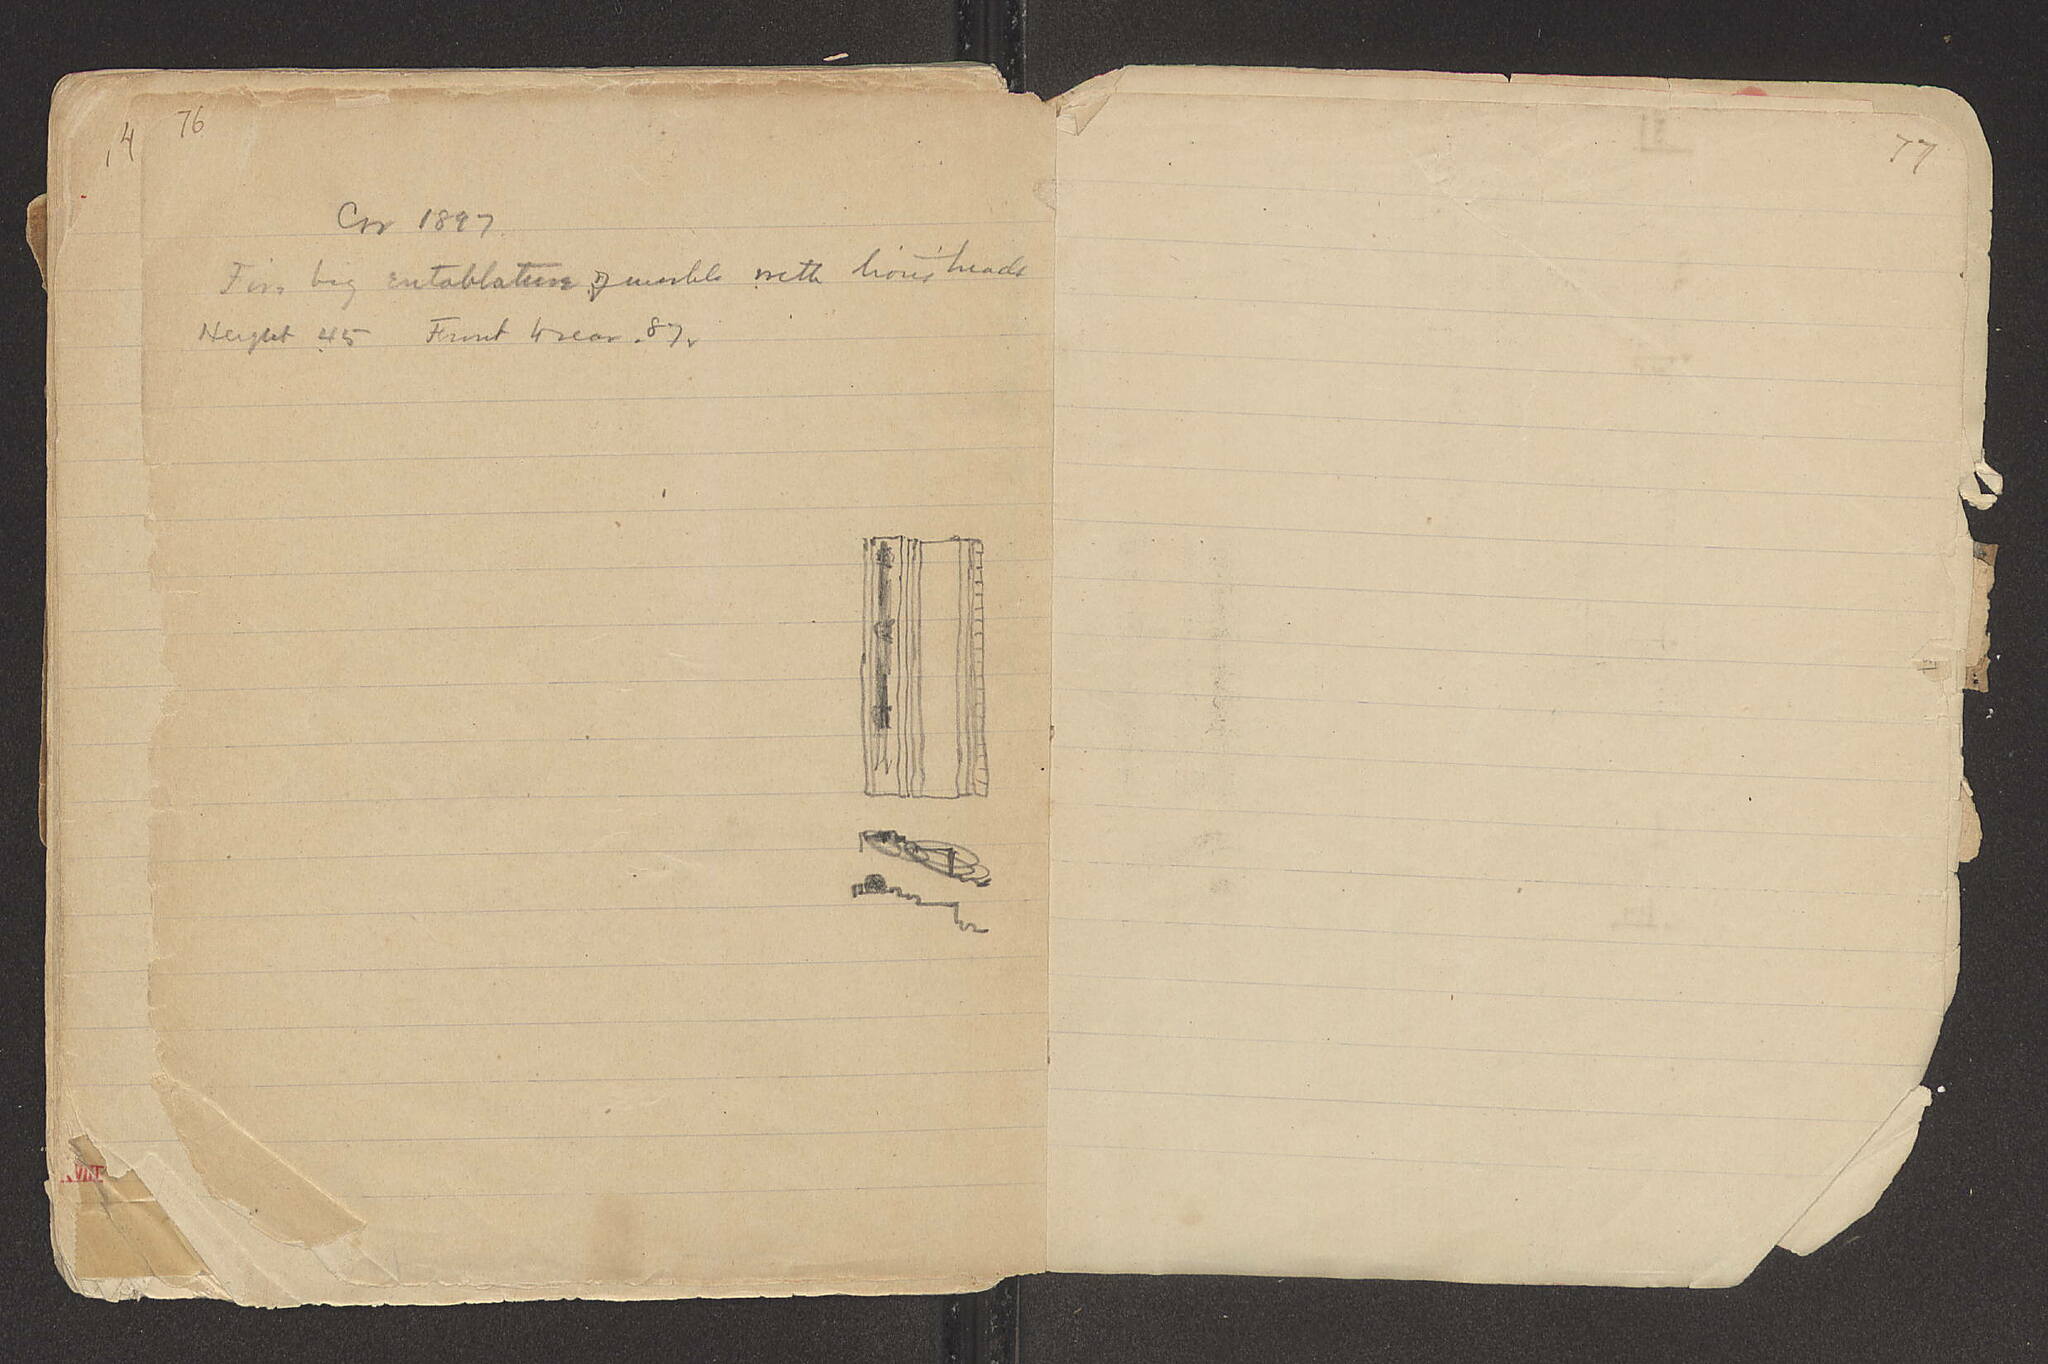 4
76
Cor 1897
big entablature of marble with lions' heads
Height 45 Front to rear .87.
77